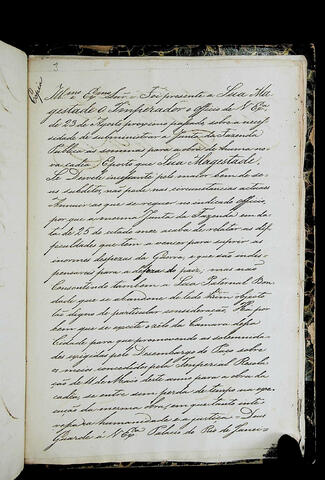 3
Copia
Illmo e Exmo Senr Foi presente a Sua Ma
gestade O Imperador o Officio de V Exa
de 23 de Agosto proximo passado sobre a necess
sidade de a Junta da Fazenda
Publica as sommas para a obra de huma no
va cadea. E posto que Sua Magestade,
Se Desvele incessante pelo maior bem de se
us subditos, não pode nas circunstancias actuaes
Annuir ao que se requer no indicado officio,
por que a mesma Junta da Fazenda em da
ta de 25 de acaba de relatar as dif
ficuldades que tem a vencer para suprir as
inormes despezas da Guerra, e que são indis
pensaveis para a defeza do paiz, mas não
Consentindo tambem a Sua Paternal Bon
dade que se abandone de todo hum objecto
tão digno de particular consideração, Ha por
bem que se excite o zelo da Camara dessa
Cidade para que promovendo as solemnida
des exigidas pelo Desembargo do Paço sobre
os meios concedidos pela Imperial Resolu
ção de 11 de Maio deste anno para a obra da
cadea, se entre sem perda de tempo na exe
cução da mesma obra, em que tanto inte
ressa a humanidade e a justiça - Deos
Guarde a V Exa Palacio do Rio de Janei-